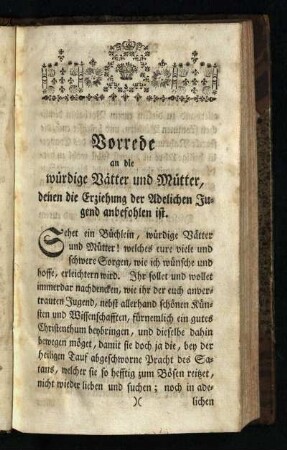 Vorrede
an die
würdige Vätter und Mütter,
denen die Erziehung der Adelichen Ju-
gend anbefohlen ist.
Sehet ein Büchlein, würdige Vätter
und Mütter! welches eure viele und
schwere Sorgen, wie ich wünsche und
hoffe, erleichtern wird. Ihr sollet und wollet
immerdar nachdencken, wie ihr der euch anver-
trauten Jugend, nebst allerhand schönen Kün-
sten und Wissenschafften, fürnemlich ein gutes
Christenthum beybringen, und dieselbe dahin
bewegen möget, damit sie doch ja die, bey der
heiligen Tauf abgeschworne Pracht des Sa-
tans, welcher sie so hefftig zum Bösen reitzet,
nicht wieder lieben und suchen; noch in ade-
)( lichen